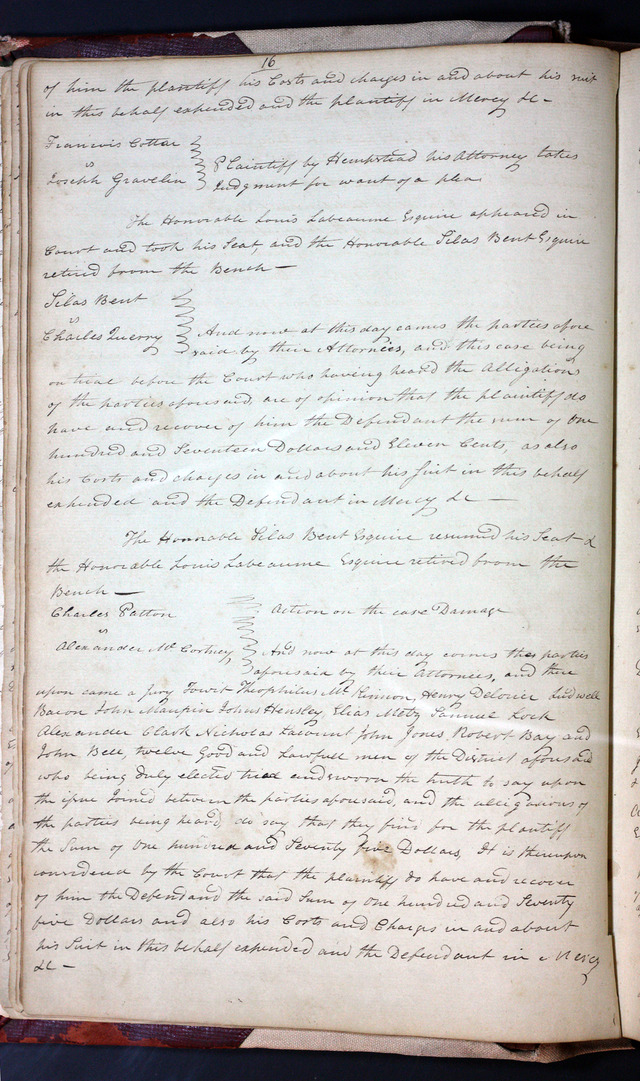 16
of him the plaintiff his Costs and charges in and about his suit
in this behalf expended and the plaintiff in Mercy &c -
Francois Cottar
vs
Joseph Gravelin
Plaintiff by Hempstead his Attorney takes
Judgment for want of a plea
The Honorable Louis Labeaume Esquire appeared in
Court and took his Seat, and the Honorable Silas Bent Esquire
retired from the Bench —
Silas Bent
vs
Charles Querry
And now at this day comes the parties afore
said by their Attornees, and this case being
on trial before the Court who having heard the Alligations
of the parties aforesaid, are of opinion that the plaintiff do
have and recover of him the Defendant the sum of One
hundred and Seventeen Dollars and Eleven Cents, as also
his Costs and charges in and about his Suit in this behalf
expended and the Defendant in Mercy &c —
The Honorable Silas Bent Esquire resumed his Seat &
the Honorable Louis Labeaume Esquire retired from the
Bench —
Charles Patton
vs
Alexander Mc Cortney
Action on the case Damage
And now at this day comes the parties
aforesaid by their Attornees, and there
upon came a Jury Towit Theophilus Mc Kinnon, Henry Delorier Ludwell
Bacon John Maupin Johns Hensley Elias Metz Samuel Lock
Alexander Clark Nicholas Lacount John Jones Robert Bay and
John Bell, twelve Good and Lawfull men of the District aforesaid
who being duly elected tried and sworn the truth to say upon
the issue Joined between the parties aforesaid, and the alligasions of
the parties being heard, do say that they find for the plaintiff
the Sum of One hundred and Seventy five Dollars, It is thereupon
considered by the Court that the plaintiff do have and recover
of him the Defendand the said Sum of One hundred and Seventy
five Dollars and also his Costs and Charges in and about
his Suit in this behalf expended and the Defendant in Mercy
&c —